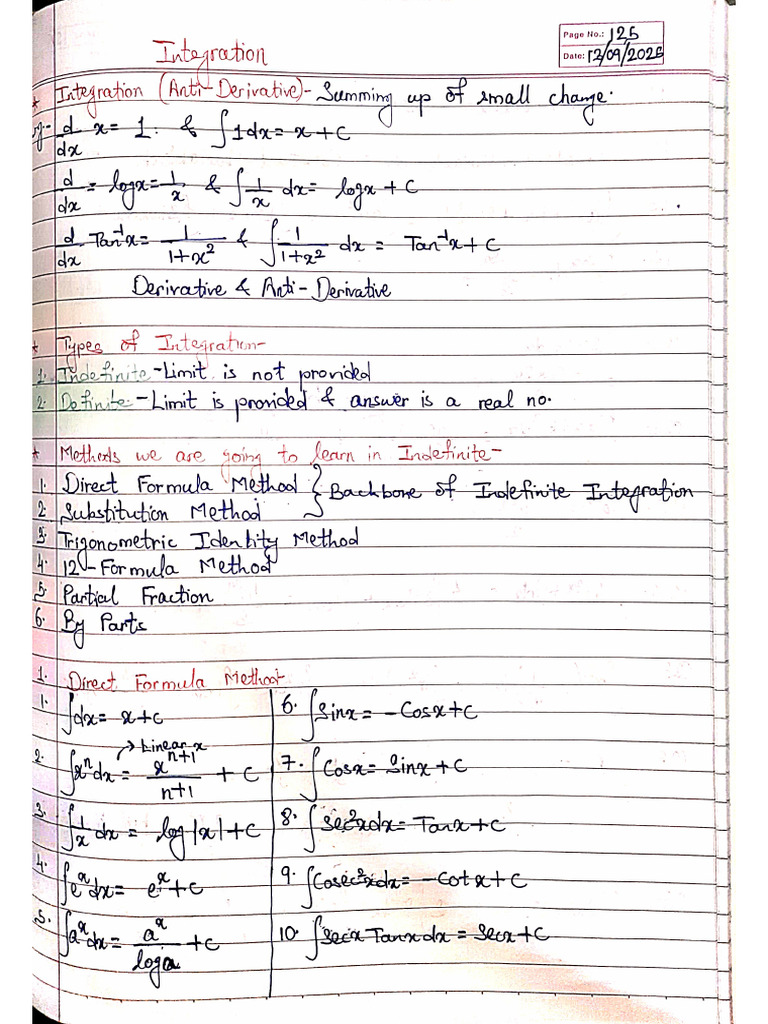 Page No.: 125
Date: 12/09/2025
Integration
* Integration (Anti-Derivative)- Summing up of small change.
eg- d/dx x = 1. & ∫1dx = x + c
d/dx = logx = 1/x & ∫1/x dx = logx + c
d/dx Tan⁻¹x = 1/1+x² & ∫1/1+x² dx = Tan⁻¹x + c
Derivative & Anti-Derivative
* Types of Integration-
1. Indefinite - Limit is not provided
2. Definite - Limit is provided & answer is a real no.
* Methods we are going to learn in Indefinite-
1. Direct Formula Method } Backbone of Indefinite Integration
2. Substitution Method
3. Trigonometric Identity Method
4. 12-Formula Method
5. Partial Fraction
6. By Parts
1. Direct Formula Method
1. ∫dx = x+c
2. ∫xⁿdx = xⁿ⁺¹/n+1 + c → Linear x
3. ∫1/x dx = log|x|+c
4. ∫eˣdx = eˣ+c
5. ∫aˣdx = aˣ/loga + c
6. ∫Sinx = -Cosx+c
7. ∫Cosx = Sinx + c
8. ∫Sec²xdx = Tanx + c
9. ∫Cosec²xdx = -cotx + c
10. ∫Secx Tanx dx = Secx + c